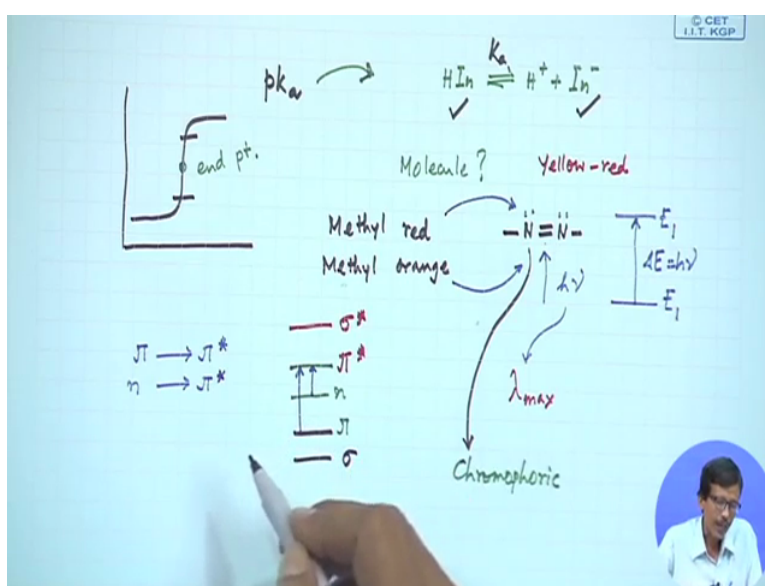 © CET
I.I.T. KGP
pKa
Ka
HIn ⇌ H⁺ + In⁻
end pt.
Molecule ?
Yellow-red
Methyl red
Methyl orange
-N̈=N̈-
hν
E₁
ΔE=hν
E₁
λmax
σ*
π → π*
π*
n → π*
n
π
σ
Chromophoric